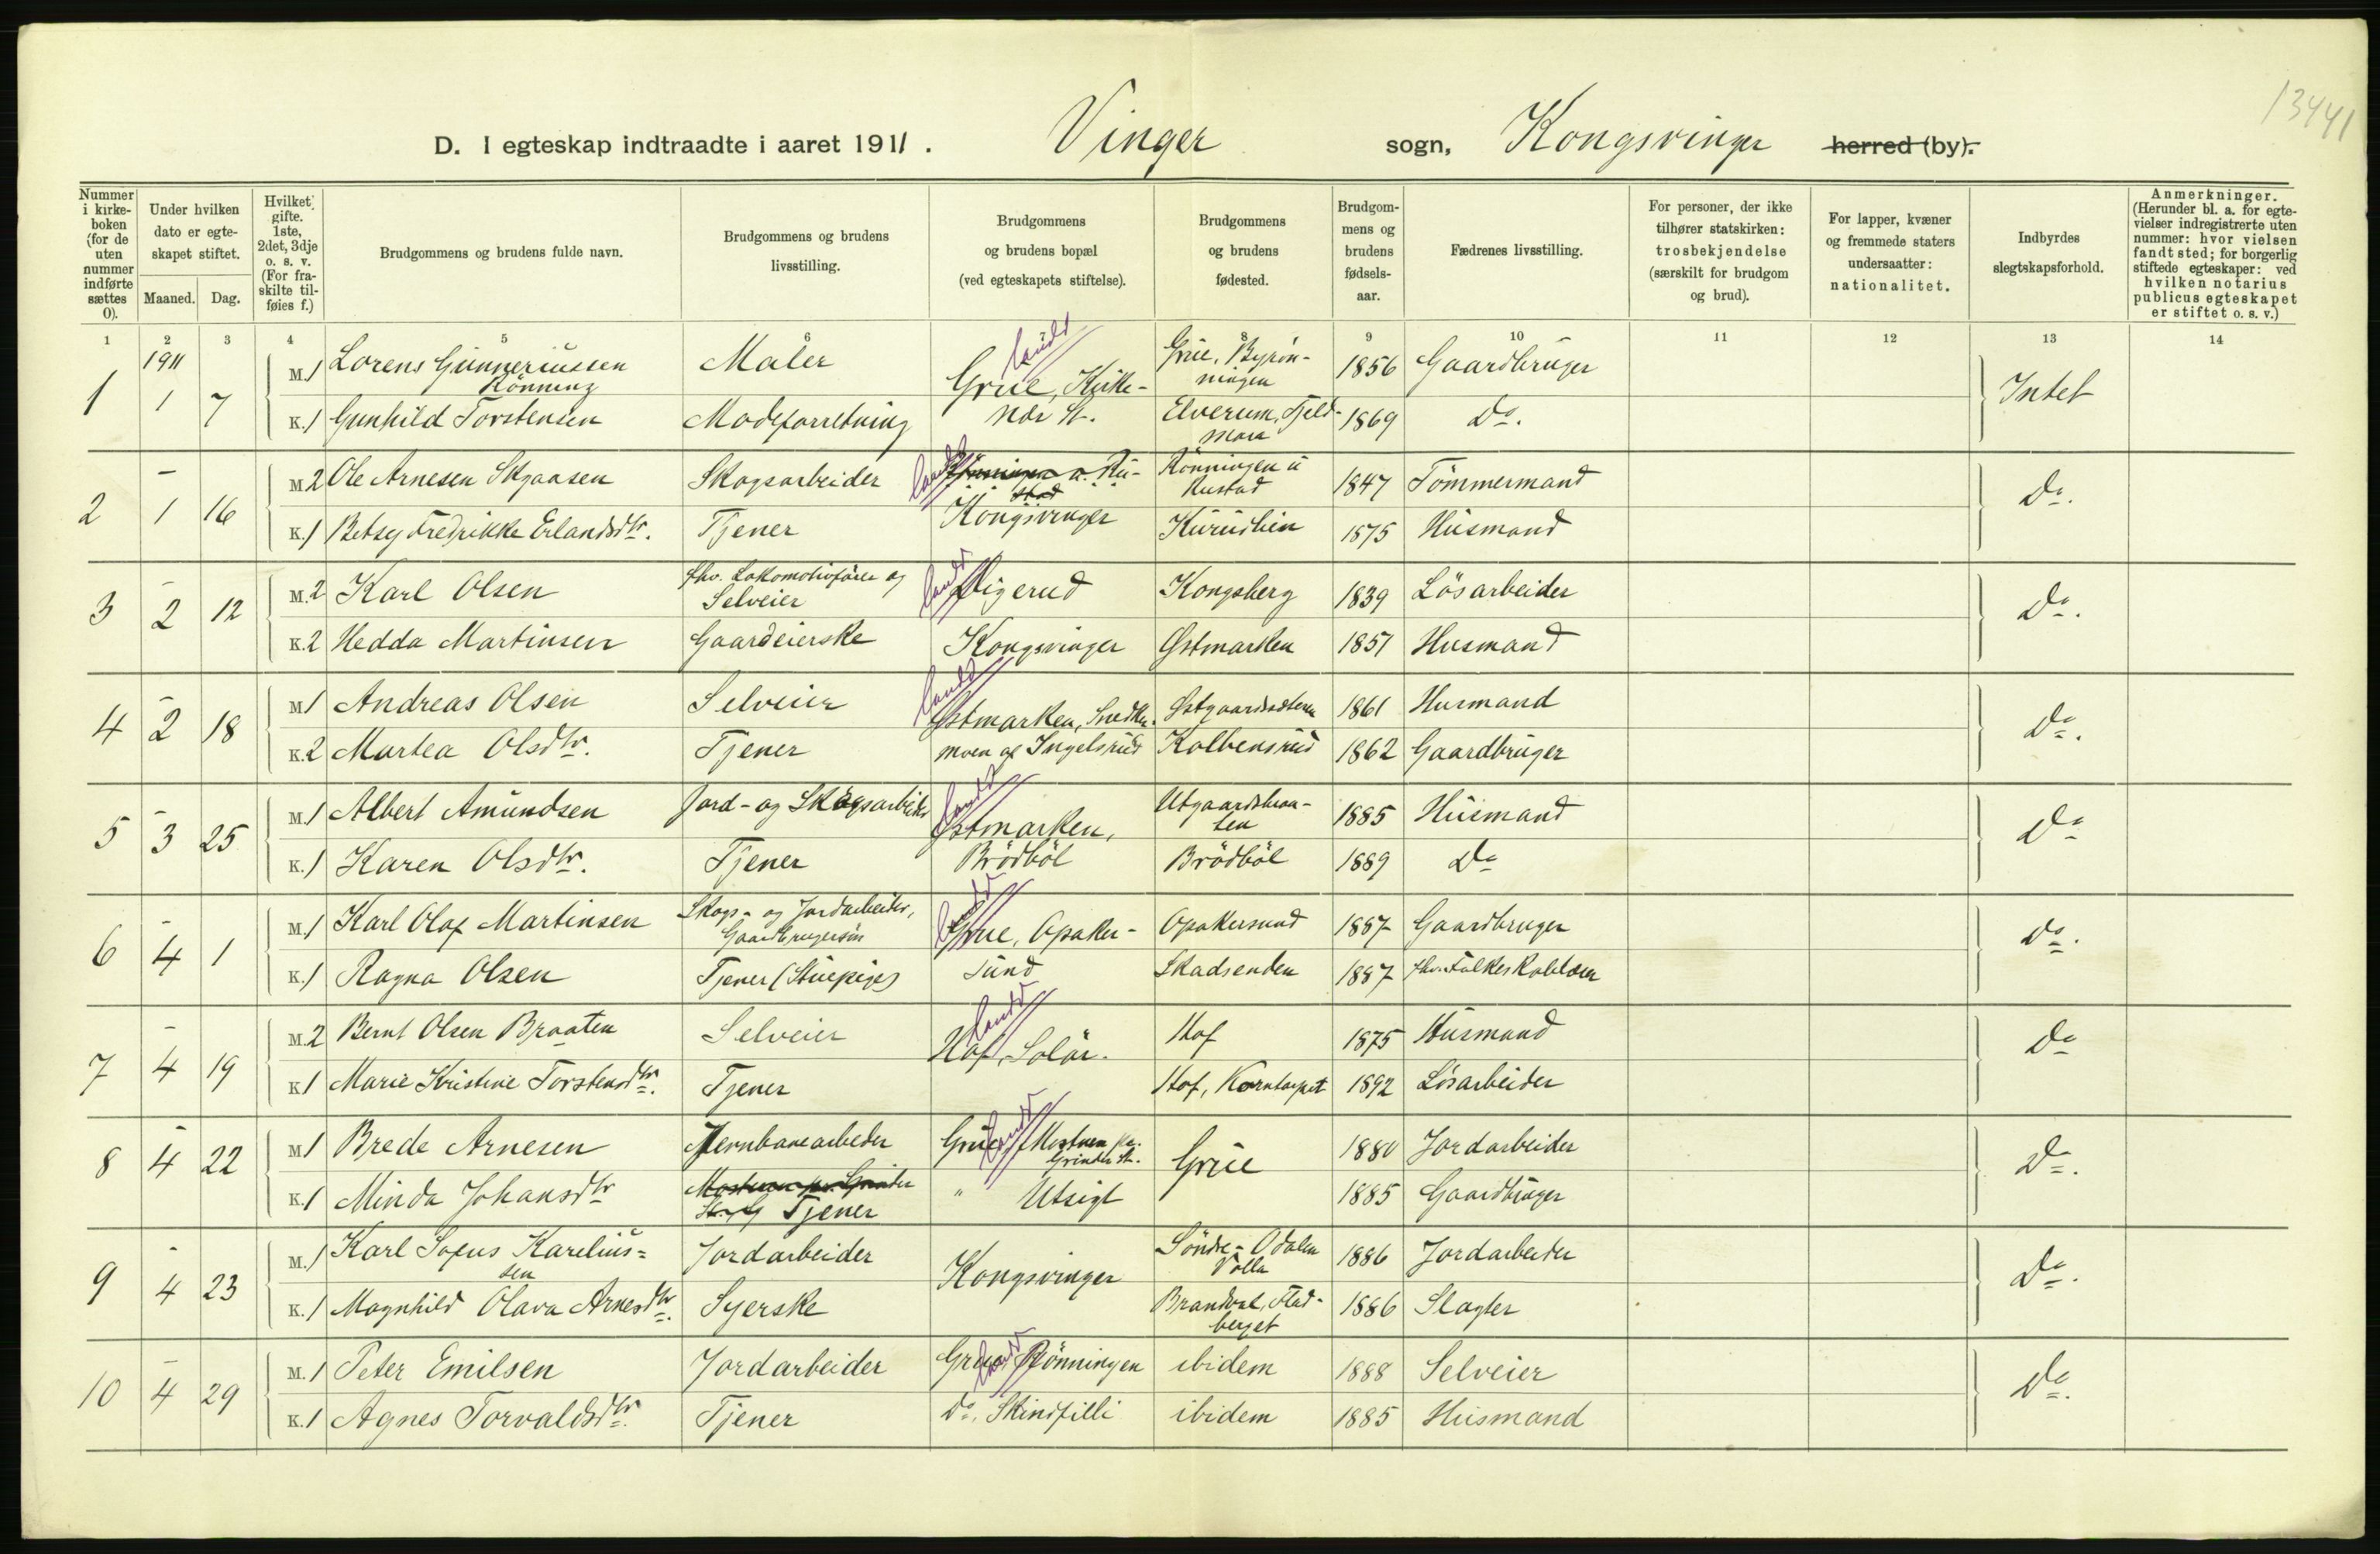 13441
D. I egteskap indtraadte i aaret 1911. Vinger sogn, Kongsvinger herred (by).
Nummer i kirke-boken (for de uten nummer indførte sættes 0).
Under hvilken dato er egte-skapet stiftet.
Maaned. Dag.
Hvilket gifte. 1ste, 2det, 3dje o. s. v. (For fra-skilte til-føies f.)
Brudgommens og brudens fulde navn.
Brudgommens og brudens livsstilling.
Brudgommens og brudens bopæl (ved egteskapets stiftelse).
Brudgommens og brudens fødested.
Brudgom-mens og brudens fødsels-aar.
Fædrenes livsstilling.
For personer, der ikke tilhører statskirken: trosbekjendelse (særskilt for brudgom og brud).
For lapper, kvæner og fremmede staters undersaatter: nationalitet.
Indbyrdes slegtskapsforhold.
Anmerkninger. (Herunder bl. a. for egte-vielser indregistrerte uten nummer: hvor vielsen fandt sted; for borgerlig stiftede egteskaper: ved hvilken notarius publicus egteskapet er stiftet o. s. v.)
1 2 3 4 5 6 8 9 10 11 12 13 14
1911
1 1 7 M. 1 Lorens Gunneriussen Rönning Maler Grue, Kirke- Grue, Byrön-ningen 1856 Gaardbruger Intet
K. 1 Gunhild Torstensen Modeforretning nær St. Elverum, Fjeld-mora 1869 Do.
2 1 16 M. 2 Ole Arnesen Skaasen Skogsarbeider Rönningen u. Ru-stad Rönningen u Rustad 1847 Tömmermand Do.
K. 1 Betsy Fredrikke Erlandsdtr. Tjener Kongsvinger 1875 Husmand
3 2 12 M. 2 Karl Olsen fhv. Lokomotivförer og Selveier Digerud Kongsberg 1839 Lösarbeider Do.
K. 2 Hedda Martinsen Gaardeierske Kongsvinger Østmarken 1851 Husmand
4 2 18 M. 1 Andreas Olsen Selveier Østmarken, Snedker- 1861 Husmand Do.
K. 2 Martea Olsdtr. Tjener moen af Ingelsrud Kolbensrud 1862 Gaardbruger
5 3 25 M. 1 Albert Amundsen Jord- og Skogsarbeider Østmarken, 1885 Husmand Do
K. 1 Karen Olsdtr. Tjener Brödböl Brödböl 1889 Do
6 4 1 M. 1 Karl Olaf Martinsen Skogs- og Jordarbeider, Gaardbrugersön Grue, Opaker- Opakersund 1887 Gaardbruger Do.
K. 1 Ragna Olsen Tjener (Stuepige) sund Skadsenden 1887 fhv. Folkeskolelærer
7 4 19 M. 2 Bernt Olsen Braaten Selveier Hof, Solör. Hof 1875 Husmand Do
K. 1 Marie Kristine Torstensdtr. Tjener Hof, Korntorpet 1892 Lösarbeider
8 4 22 M. 1 Brede Arnesen Jernbanearbeider Grue, Mostuen pr. Grinder St. Grue 1880 Jordarbeider Do.
K. 1 Minda Johansdtr Mostuen pr. Grinder St. Tjener " Utsigt 1885 Gaardbruger
9 4 23 M. 1 Karl Sofus Karelius=sen Jordarbeider Kongsvinger Söndre-Odalen Volla 1886 Jordarbeider Do.
K. 1 Magnhild Olava Arnesdtr. Syerske Brandval, Flad-berget 1886 Slagter
10 4 29 M. 1 Peter Emilsen Jordarbeider Grue Rönningen ibidem 1888 Selveier Do.
K. 1 Agnes Torvaldsdtr. Tjener Do. Skindfilli ibidem 1885 Husmand